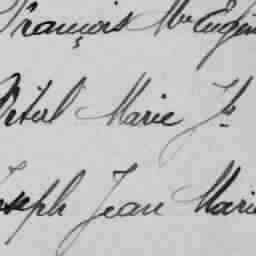 François M^ie Eugèn
Marie J^h
Joseph Jean Marie